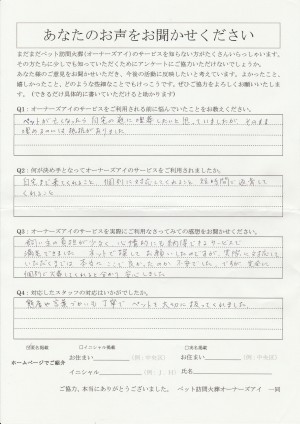 あなたのお声をお聞かせください
まだまだペット訪問火葬(オーナーズアイ)のサービスを知らない方がたくさんいらっしゃいます。
その方たちに少しでも知っていただくためにアンケートにご協力いただけないでしょうか。
あなた様のご意見をお聞かせいただき、今後の活動に反映したいと考えています。よかったこと、
嬉しかったこと、どのような些細なことでもけっこうです。ぜひご協力をよろしくお願いいたしま
す。(できるだけ具体的に書いていただけると助かります)
Q1:オーナーズアイのサービスをご利用される前に悩んでいたことをお教えください。
ペットが亡くなったら自宅の庭に埋葬したいと思っていましたが、そのまま
埋めるのには抵抗がありました
Q2:何が決め手となってオーナーズアイのサービスをご利用されましたか。
自宅まで来てくれること、個別に対応してくれること、短時間で返骨して
くれること
Q3:オーナーズアイのサービスを実際にご利用なさってみての感想をお聞かせください。
飼い主の負担が少なく、心情的にも納得できるサービスで
満足できました。ネットで探してお願いしたのですが、実際に対応して
いただくまでは、本当にここで良かったのか不安でした。ですが、実際に
個別に火葬してくれると分かり安心しました
Q4:対応したスタッフの対応はいかがでしたか。
態度や言葉づかいも丁寧で、ペットを大切に扱ってくれました。
ホームページでご紹介
☑匿名掲載
□イニシャル掲載
□実名掲載
お住まい (例:中央区)
お住まい (例:中央区)
イニシャル (例:J.H)
氏名
ご協力、本当にありがとうございました。 ペット訪問火葬オーナーズアイ 一同